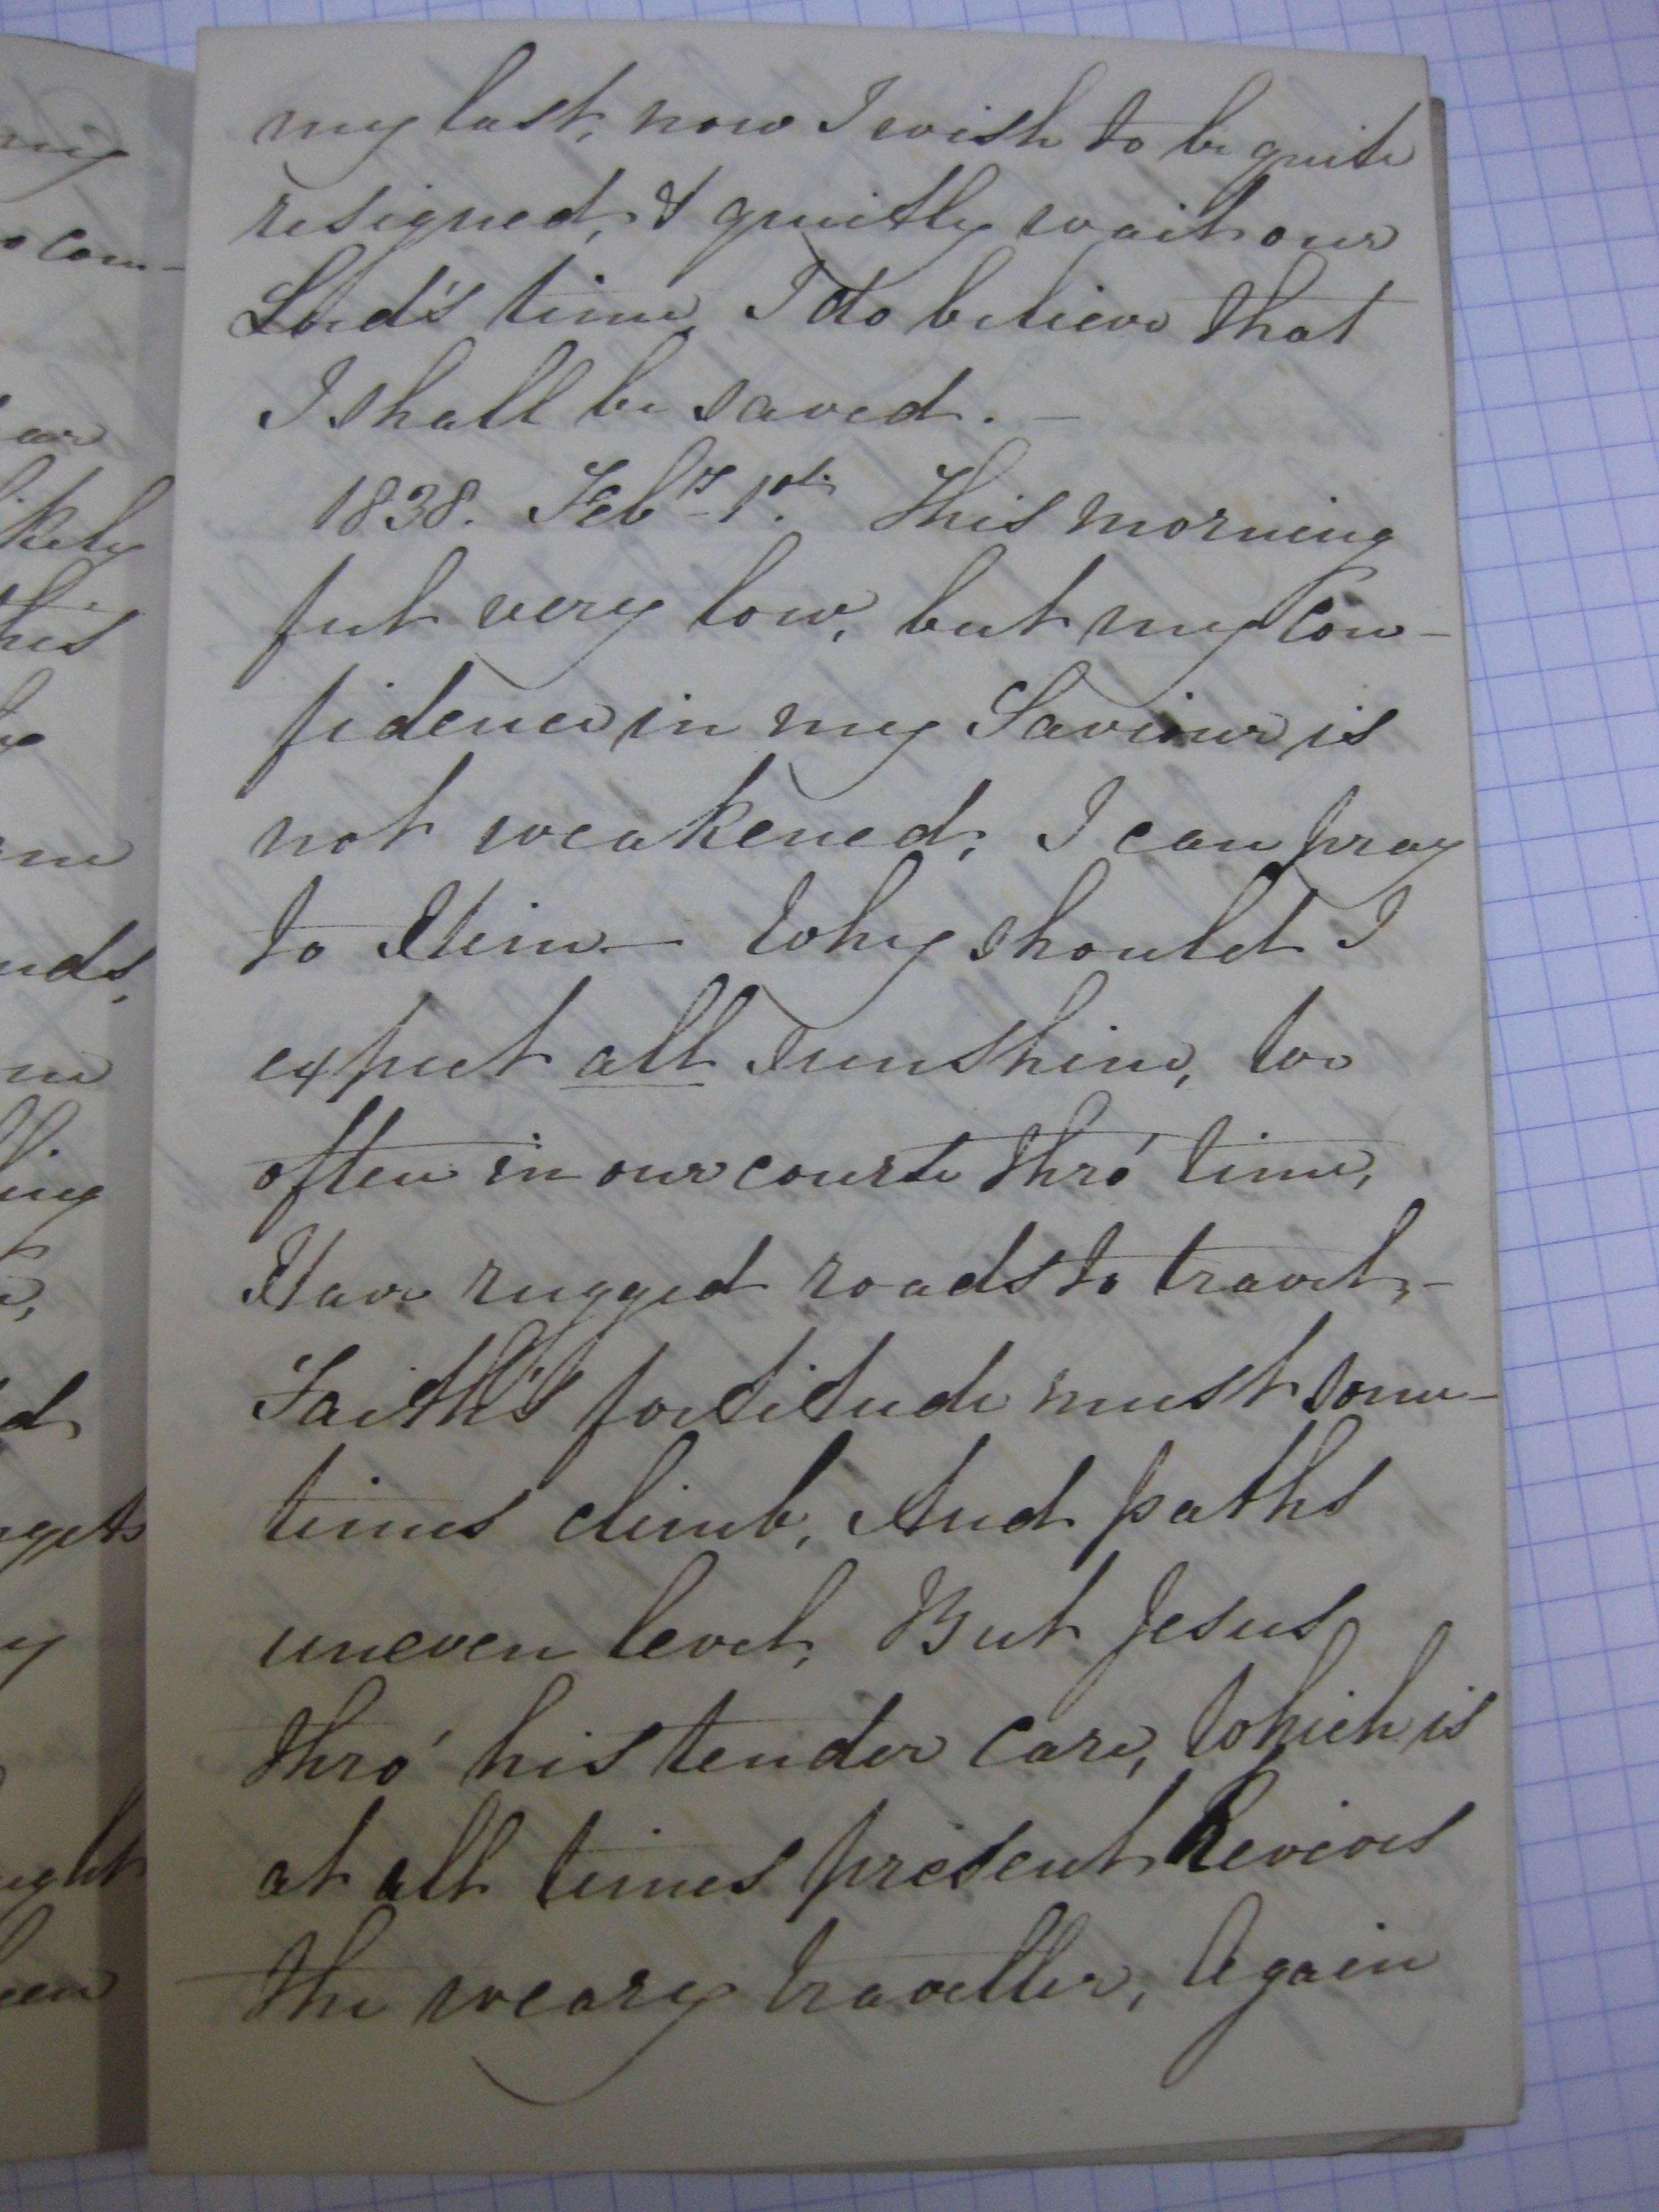 my last, now I wish to be quite
resigned, & quietly wait our
Lord's time, I do believe that
I shall be saved. —
1838. Feby. 1st. This morning
felt very low, but my con-
fidence in my Saviour is
not weakened, I can pray
to Him — Why should I
expect all sunshine, We
often in our course thro' time,
Have rugged roads to travel, —
Faith's fortitude must some-
times climb, And paths
uneven level, But Jesus
thro' his tender care, Which is
at all times present Revives
the weary traveller, Again